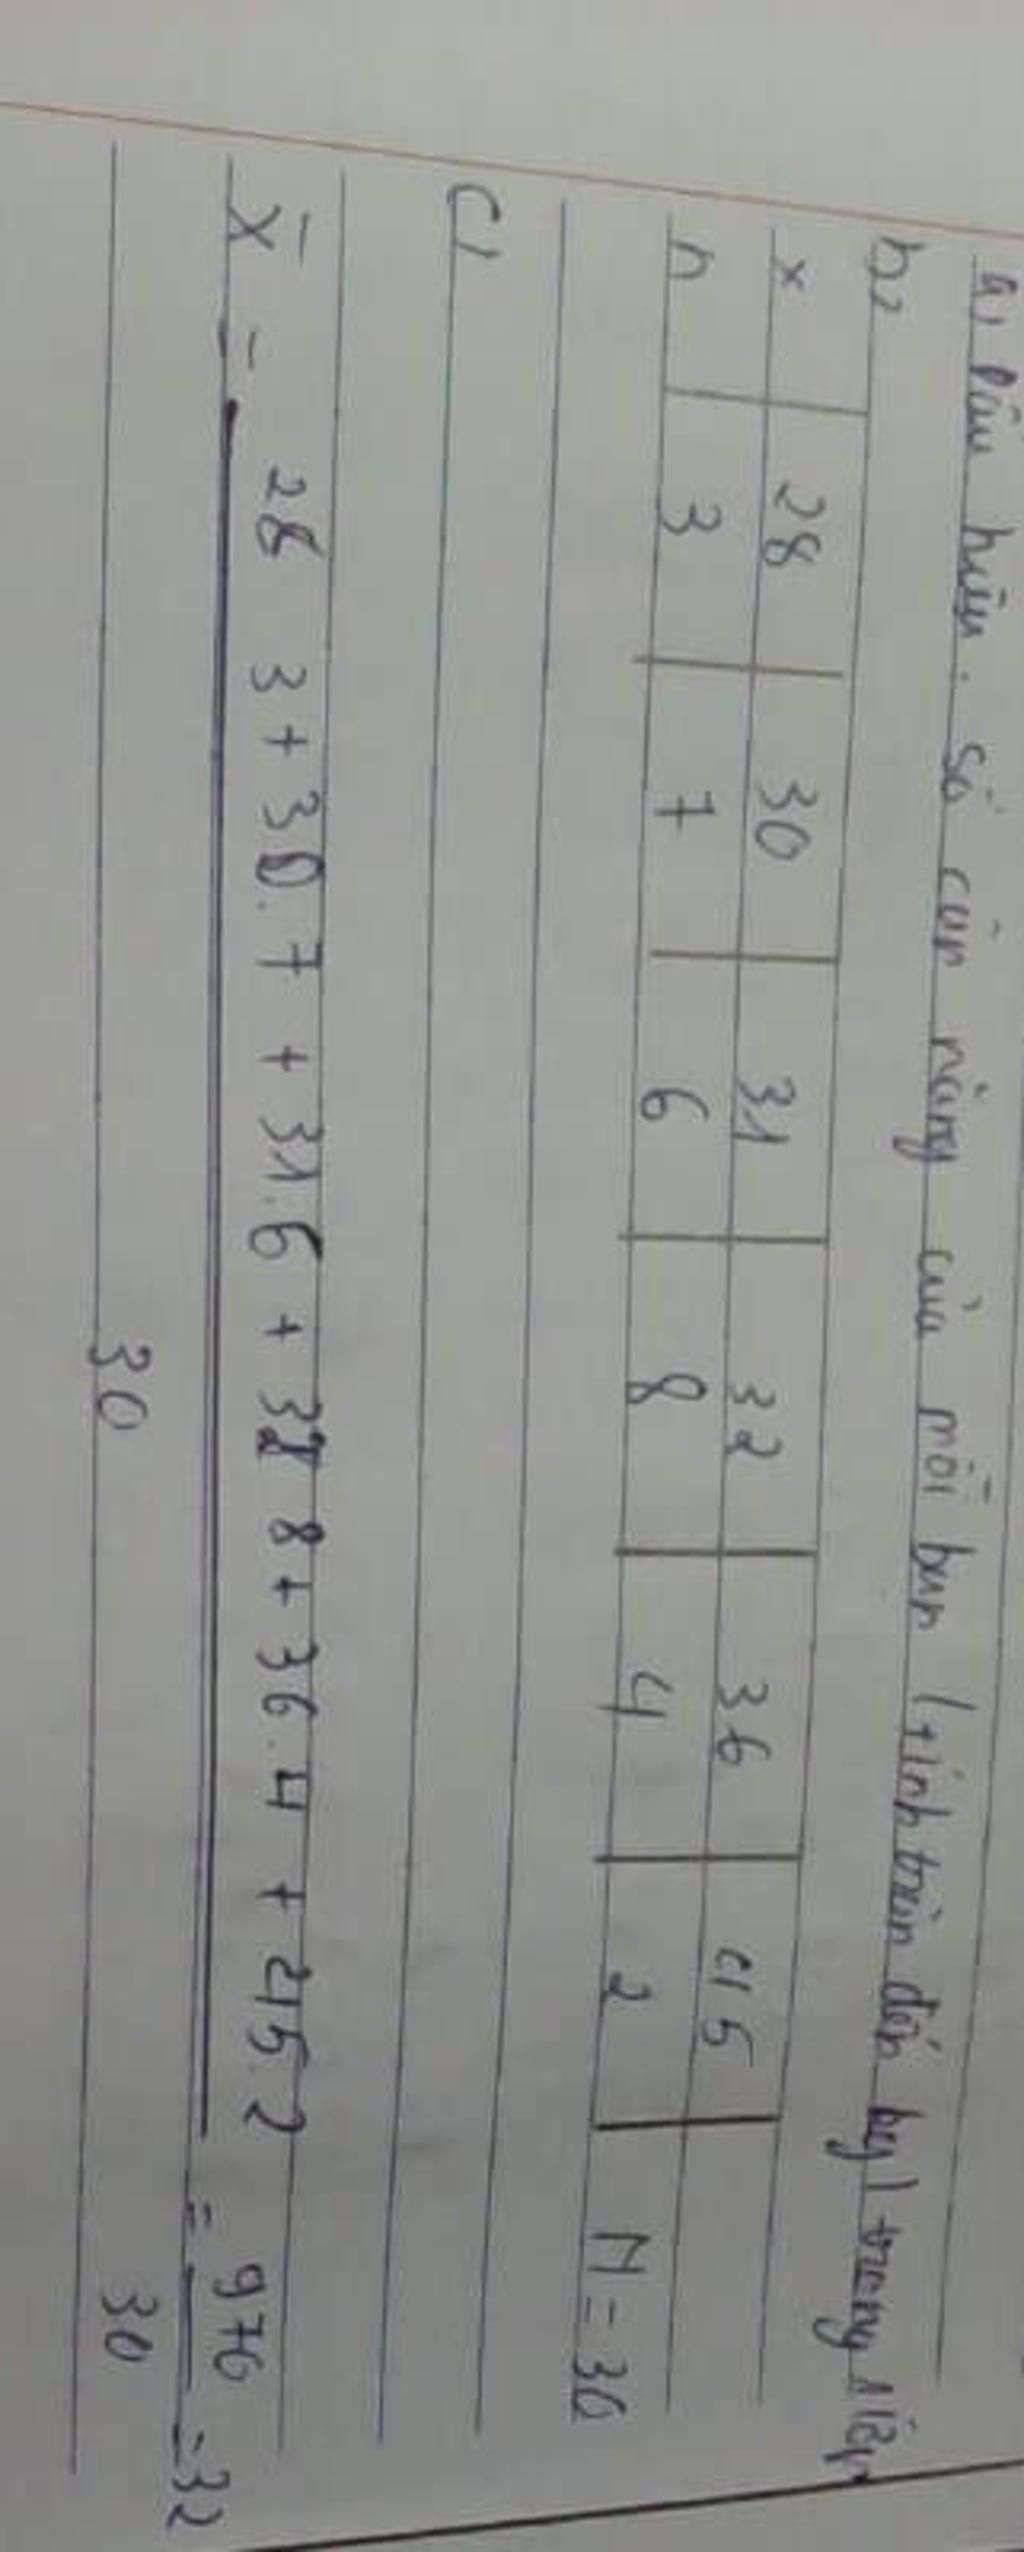 a, Dấu hiệu: số cân nặng của mỗi bạn (tính tròn đến kg) trong 1 lớp
b,
x 28 30 31 32 36 45
n 3 7 6 8 4 2 N = 30
c,
X̄ = 28 3 + 30.7 + 31.6 + 32 8 + 36.4 + 45 2 = 976 = 32
30 30